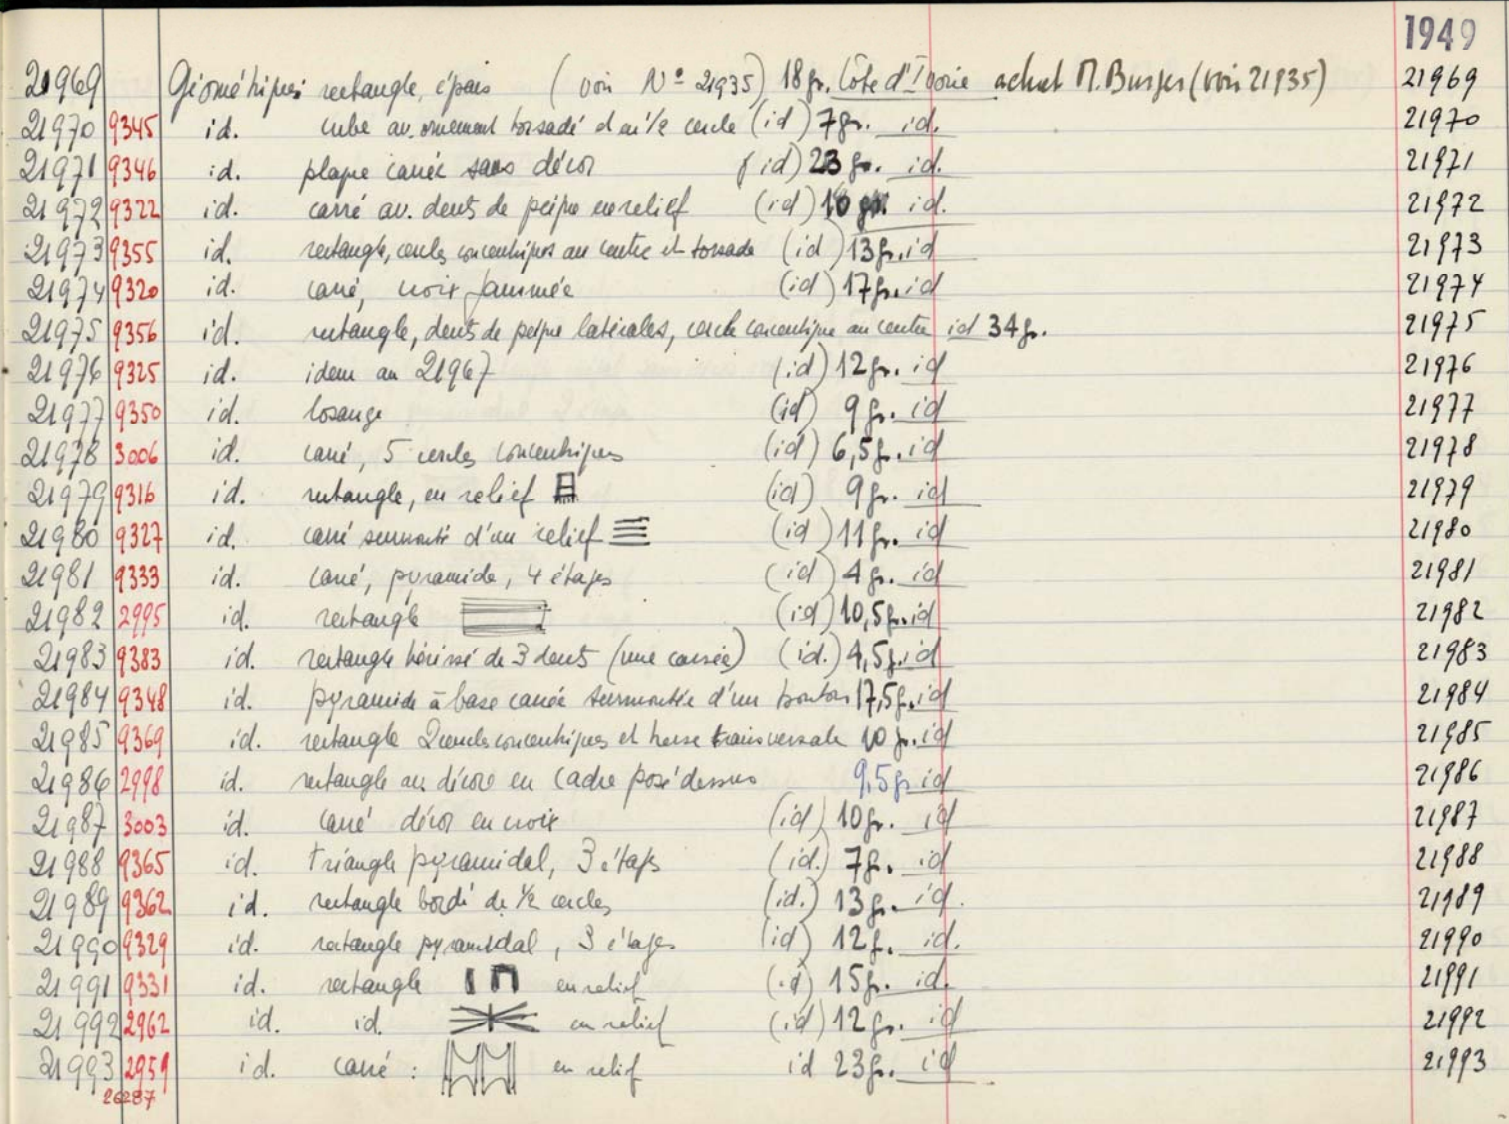 1949
21969 Géométrique rectangle, épais (voir N° 21935) 18 gr. Côte d'Ivoire achat M. Burger (voir 21935) 21969
21970 9345 id. cube av. ornement torsadé et en ½ cercle (id) 7 gr. id. 21970
21971 9346 id. plaque carrée sans décor (id) 23 gr. id. 21971
21972 9322 id. carré av. dents de peigne en relief (id) 10 gr. id. 21972
21973 9355 id. rectangle, cercles concentriques au centre et torsade (id) 13 gr. id 21973
21974 9320 id. carré, croix gammée (id) 17 gr. id 21974
21975 9356 id. rectangle, dents de peigne latérales, cercle concentrique au centre id 34 gr. 21975
21976 9325 id. idem au 21967 (id) 12 gr. id 21976
21977 9350 id. losange (id) 9 gr. id 21977
21978 3006 id. carré, 5 cercles concentriques (id) 6,5 gr. id 21978
21979 9316 id. rectangle, en relief (id) 9 gr. id 21979
21980 9327 id. carré surmonté d'un relief (id) 11 gr. id 21980
21981 9333 id. carré, pyramide, 4 étages (id) 4 gr. id 21981
21982 2995 id. rectangle (id) 10,5 gr. id 21982
21983 9383 id. rectangle hérissé de 3 dents (une cassée) (id.) 4,5 gr. id 21983
21984 9348 id. pyramide à base carrée surmontée d'un bouton 17,5 gr. id 21984
21985 9369 id. rectangle 2 cercles concentriques et herse transversale 10 gr. id 21985
21986 2998 id. rectangle au décor en cadre posé dessus 9,5 gr id 21986
21987 3003 id. carré décor en croix (id) 10 gr. id 21987
21988 9365 id. triangle pyramidal, 3 étages (id.) 7 gr. id 21988
21989 9362 id. rectangle bordé de ½ cercles (id.) 13 gr. id. 21989
21990 9329 id. rectangle pyramidal, 3 étages (id) 12 gr. id. 21990
21991 9331 id. rectangle en relief (id) 15 gr. id. 21991
21992 2962 id. id. en relief (id) 12 gr. id 21992
21993 2959 id. carré : en relief id 23 gr. id 21993
26287